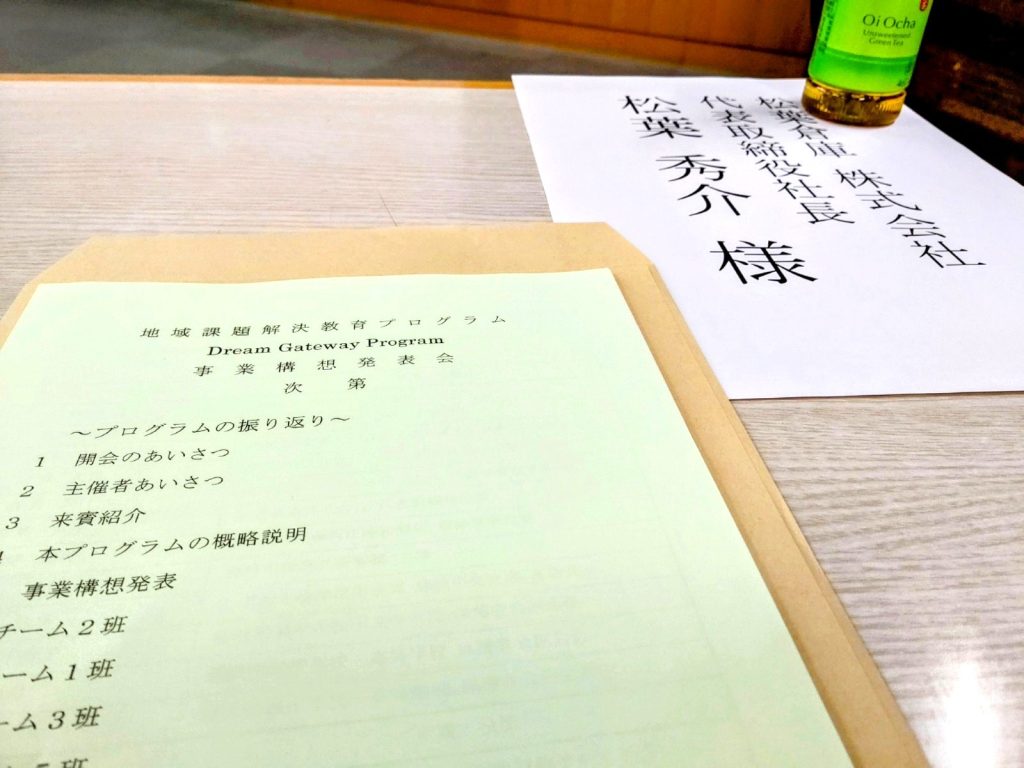 地域課題解決教育プログラム
Dream Gateway Program
事業構想発表会
次 第
～プログラムの振り返り～
1 開会のあいさつ
2 主催者あいさつ
3 来賓紹介
4 本プログラムの概略説明
事業構想発表
チーム2班
ーム1班
ーム3班
松葉倉庫 株式会社
代表取締役社長
松葉 秀介 様
Oi Ocha
Unsweetened
Green Tea